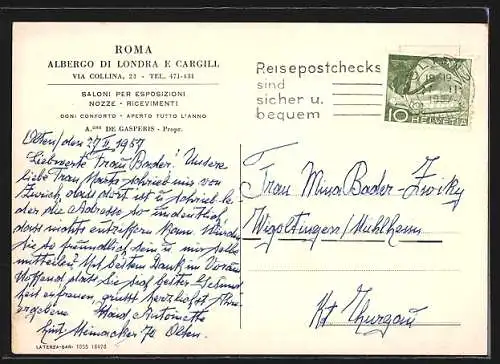 ROMA
ALBERGO DI LONDRA E CARGILL
VIA COLLINA, 23 - TEL. 471-431
SALONI PER ESPOSIZIONI
NOZZE - RICEVIMENTI
OGNI CONFORTO - APERTO TUTTO L'ANNO
DE GASPERIS - Propr.
Olten, den 1957
Liebwerte Frau Bader! Unsere
liebe Frau schrieb mir von
Zürich, dass dort ist u. schrieb
der die Adresse so undeutlich,
dass nichts entziffern kann. Würden
Sie so freundlich sein u. mir selbe
mitteilen? Mit bestem Dank im Voraus
Hoffend, dass Sie sich bester Gesund
heit erfreuen, grüsst herzlichst Ihre
ergebene Antoinette
Olten.
LATERZA-BARI
Reisepostchecks
sind
sicher u.
bequem
10 HELVETIA
Frau Mina Bader-Zwicky
Wigoltingen/Mühlheim
Kt Thurgau